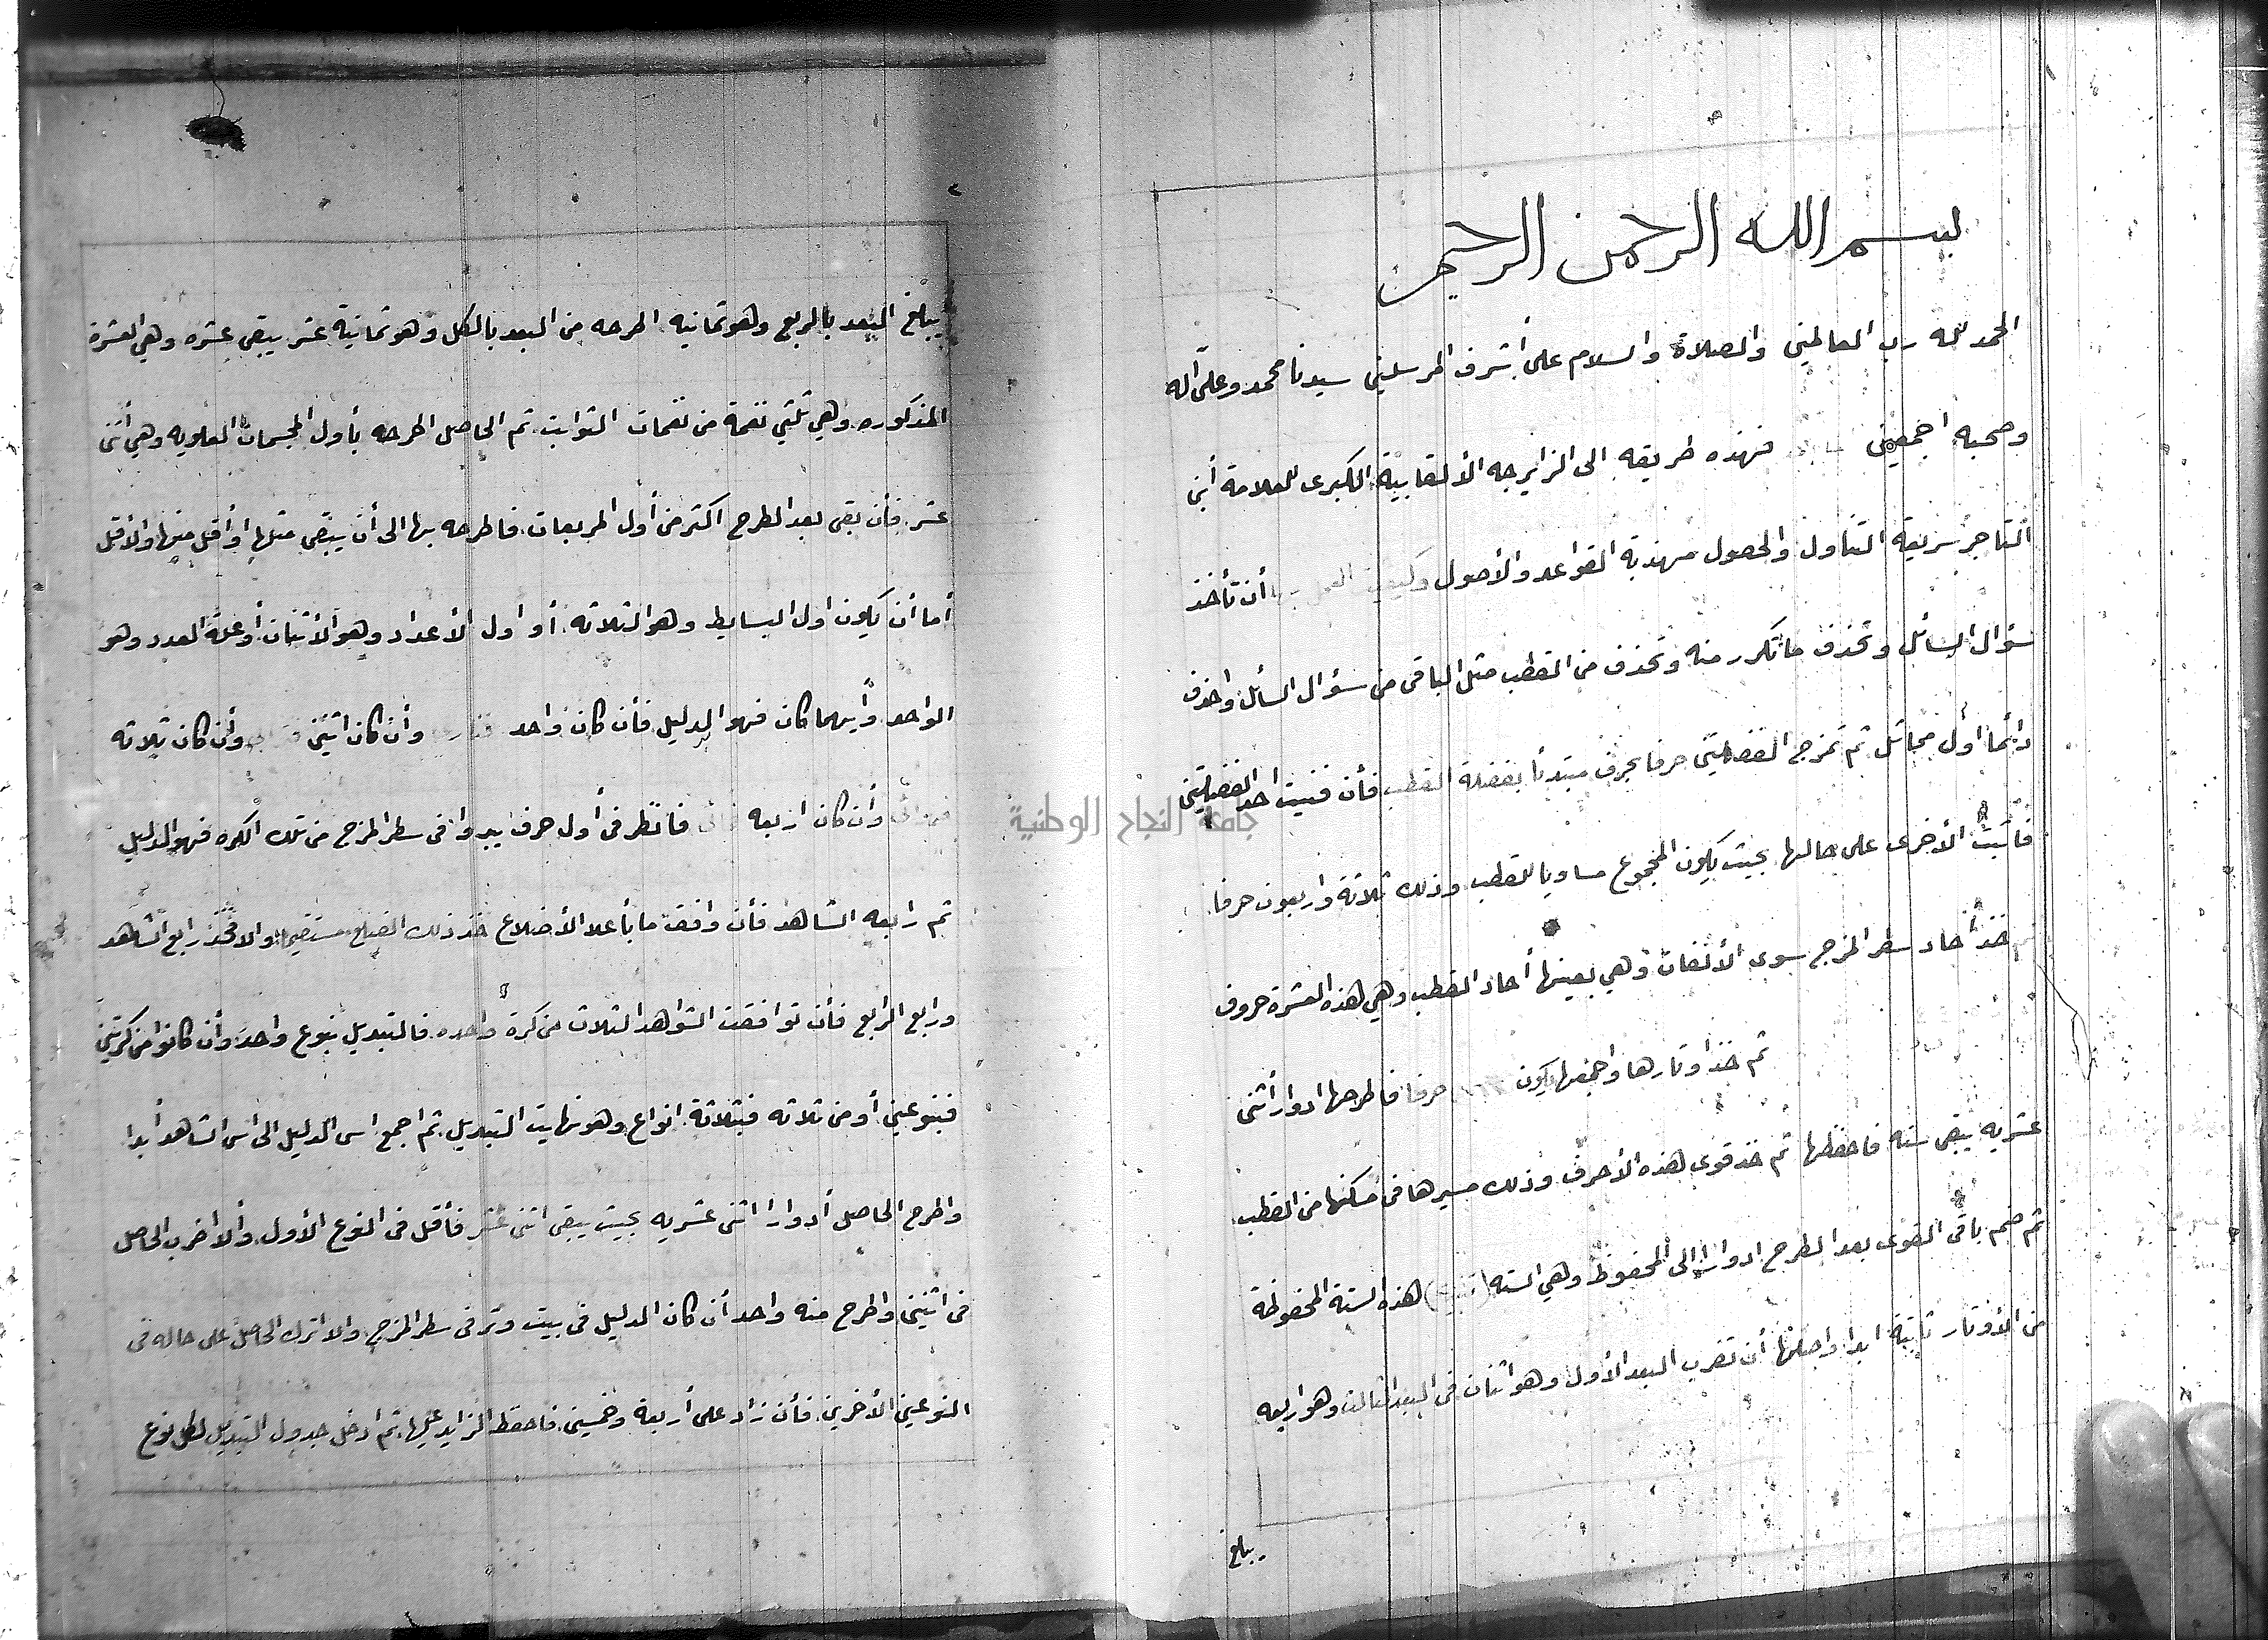 بسم الله الرحمن الرحيم
الحمد لله رب العالمين والصلاة والسلام على أشرف المرسلين سيدنا محمد وعلى آله
وصحبه اجمعين فهذه طريقه الى الزايرجه الألقابية الكبرى للعلامة أبن
التاجر سريعة التناول والحصول مهذبة القواعد والأصول وكيفية العمل بها أن تأخذ
سؤال السائل وتحذف ما تكرر منه وتحذف من القطب مثل الباقى من سؤال السأئل واحذف
دائما أول مماثل ثم تمزج الفضلتين حرفا بحرف مبتدئا بفضلة القطب فأن فنيت احد الفضلتين
فأثبت الأخرى على حالها بحيث يكون المجموع مساويا للقطب وذلك ثلاثة واربعون حرفا
خذ أحاد سطر المزج سوى الألفات وهي بعينها أحاد القطب وهي هذه العشرة حروف
ثم خذ اوتارها واجمعها يكون حرفا فاطرحها ادوار أثنى
عشريه يبقى سته فاحفظها ثم خذ قوى هذه الأحرف وذلك مسيرها فى مسكنها من القطب
ثم ضم باقى القوى بعد الطرح ادوارا الى المحفوظ وهي السته هذه الستة المحفوظة
من الأوتار ثابتة ابدا واصلها أن تضرب البعد الأول وهو اثنان فى البعد الثالث وهو اربعه
يبلغ
جامعة النجاح الوطنية
٢
يبلغ البعد بالربع وهو ثمانيه اطرحه من البعد بالكل وهو ثمانية عشر يبقى عشره وهي العشرة
المذكوره وهي ثلثي نغمة من نغمات الثوابت ثم الحاصل اطرحه بأول المجسمات العلويه وهي أثنى
عشر فأن بقى بعد الطرح اكثر من أول المربعات فاطرحه بها الى أن يبقى مثلها أو أقل منها والأقل
أما أن يكون اول البسايط وهو الثلاثه أو اول الأعداد وهو الأثنان أو علة العدد وهو
الواحد وأيهما كان فهو الدليل فأن كان واحد وأن كان اثنين وأن كان ثلاثه
وأن كان اربعه فانظر فى أول حرف يبدوا فى سطر المزج من تلك الكره فهو الدليل
ثم رابعه الشاهد فأن وافق ما بأعلا الأضلاع خذ ذلك الضلع مستقيما والا فخذ رابع الشاهد
ورابع الرابع فأن توافقت الشواهد الثلاث من كرة واحده فالتبديل بنوع واحد وأن كانوا من كرتين
فبنوعين أو من ثلاثه فبثلاثة انواع وهو نهايت التبديل ثم اجمع اس الدليل الى اس الشاهد أبدا
واطرح الحاصل أدوارا اثنى عشريه بحيث يبقى اثنى عشر فأقل فى النوع الأول وألا اضرب الحاصل
فى اثنين واطرح منه واحد أن كان الدليل فى بيت وتر فى سطر المزج والا اترك الحاصل على حاله فى
النوعين الأخرين فأن زاد على أربعة وخمسين فاحفظ الزايد عليها ثم ادخل جدول التبديل لكل نوع